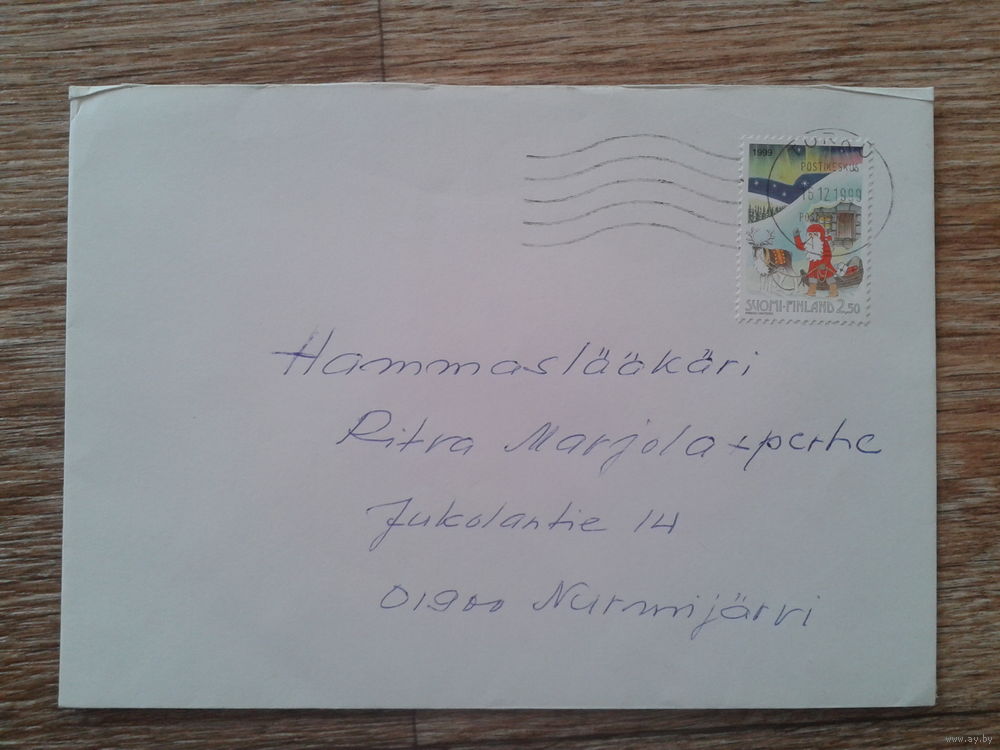 1999
POSTIKESKUS
15 12 1999
SUOMI-FINLAND 2,50
Hammaslääkäri
Ritva Marjola + perhe
Jukolantie 14
01900 Nurmijärvi
www.ay.by